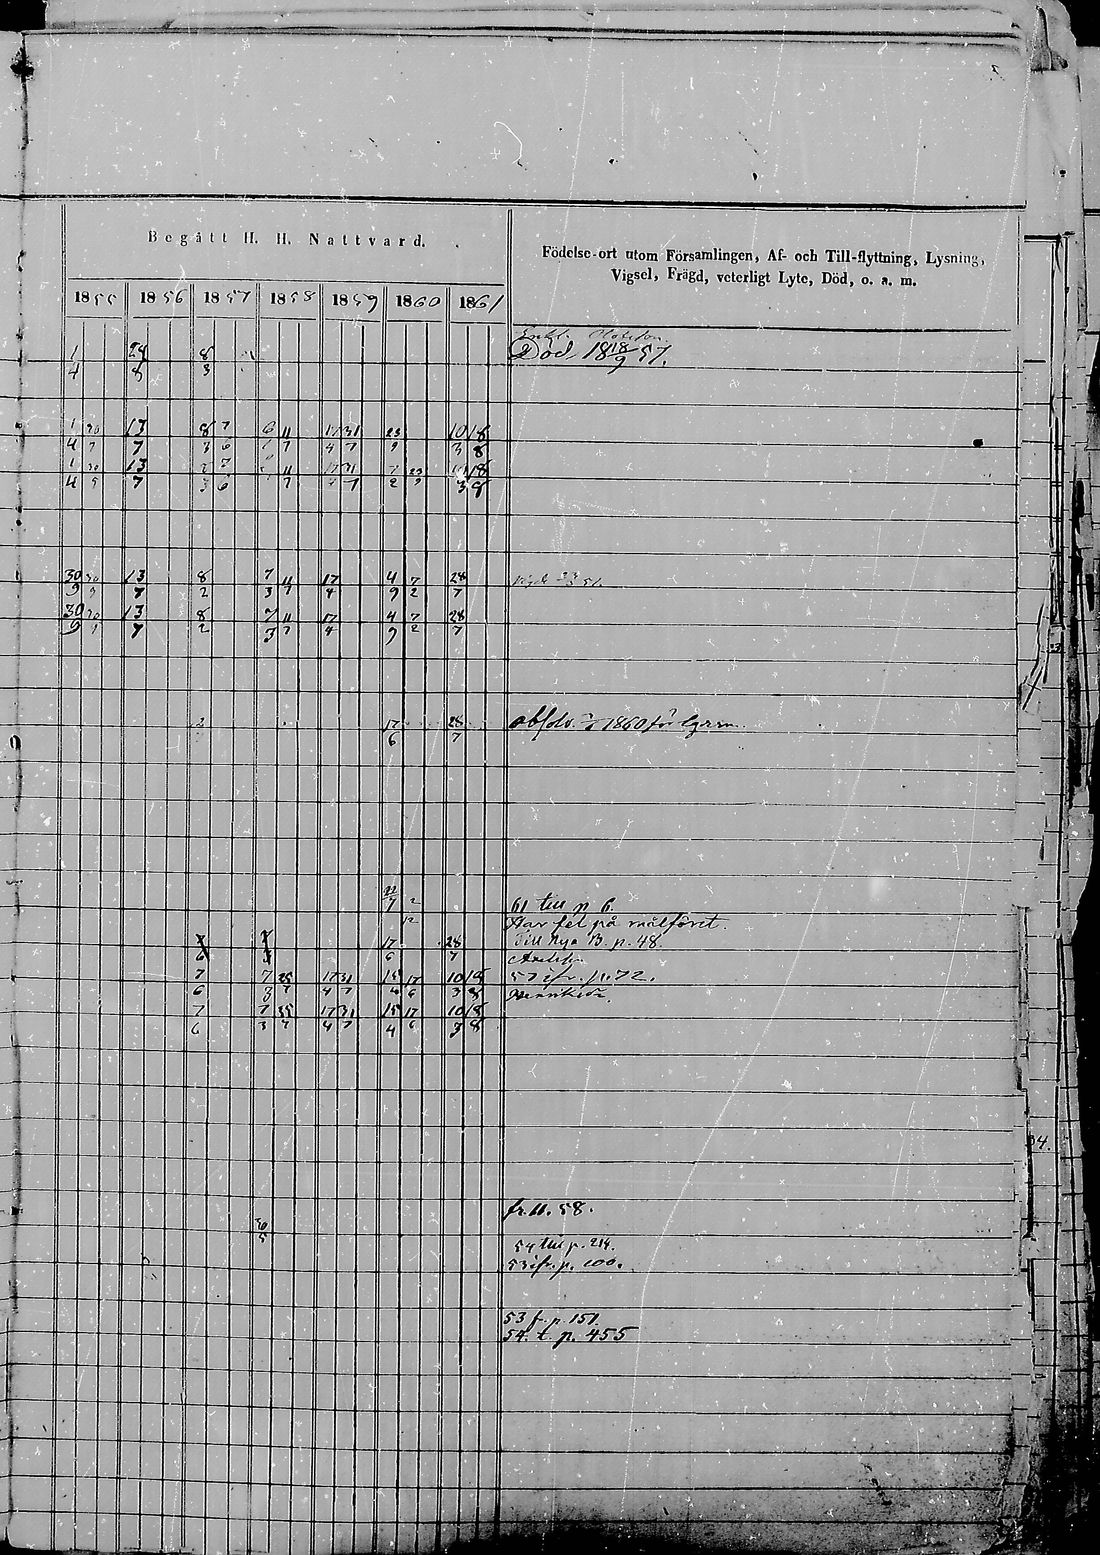 Begått H. H. Nattvard.
Födelse-ort utom Församlingen, Af- och Till-flyttning, Lysning,
Vigsel, Frägd, veterligt Lyte, Död, o. a. m.
1855 1856 1857 1858 1859 1860 1861
Enkl.
1 24 8 Död 18 18/9 57.
4 8 3
1 30 13 8 7 6 11 17 31 23 10 18
4 9 7 3 6 7 4 7 9 3 8
1 30 13 7 11 17 31 7 23 10 18
4 9 7 3 6 7 7 2 9 3 8
30 30 13 8 7 11 17 4 7 28 51.
9 9 7 2 3 7 4 9 2 7
30 30 13 8 7 11 17 4 7 28
9 9 7 2 3 7 4 9 2 7
2 17 28 1860 för
6 7
22
7 2 61 till p 6.
12 Har fel på målföret.
7 7 17 28 Till Nya B. p. 48.
6 6 7
7 7 25 17 31 15 17 10 18 57 ifr. p. 72.
6 3 7 4 7 4 6 3 8
7 7 25 17 31 15 17 10 18
6 3 7 4 7 4 6 3 8
34.
fr. 11. 58.
5
54 till p. 214.
53 ifr. p. 100.
53 f. p. 151.
54. t. p. 455